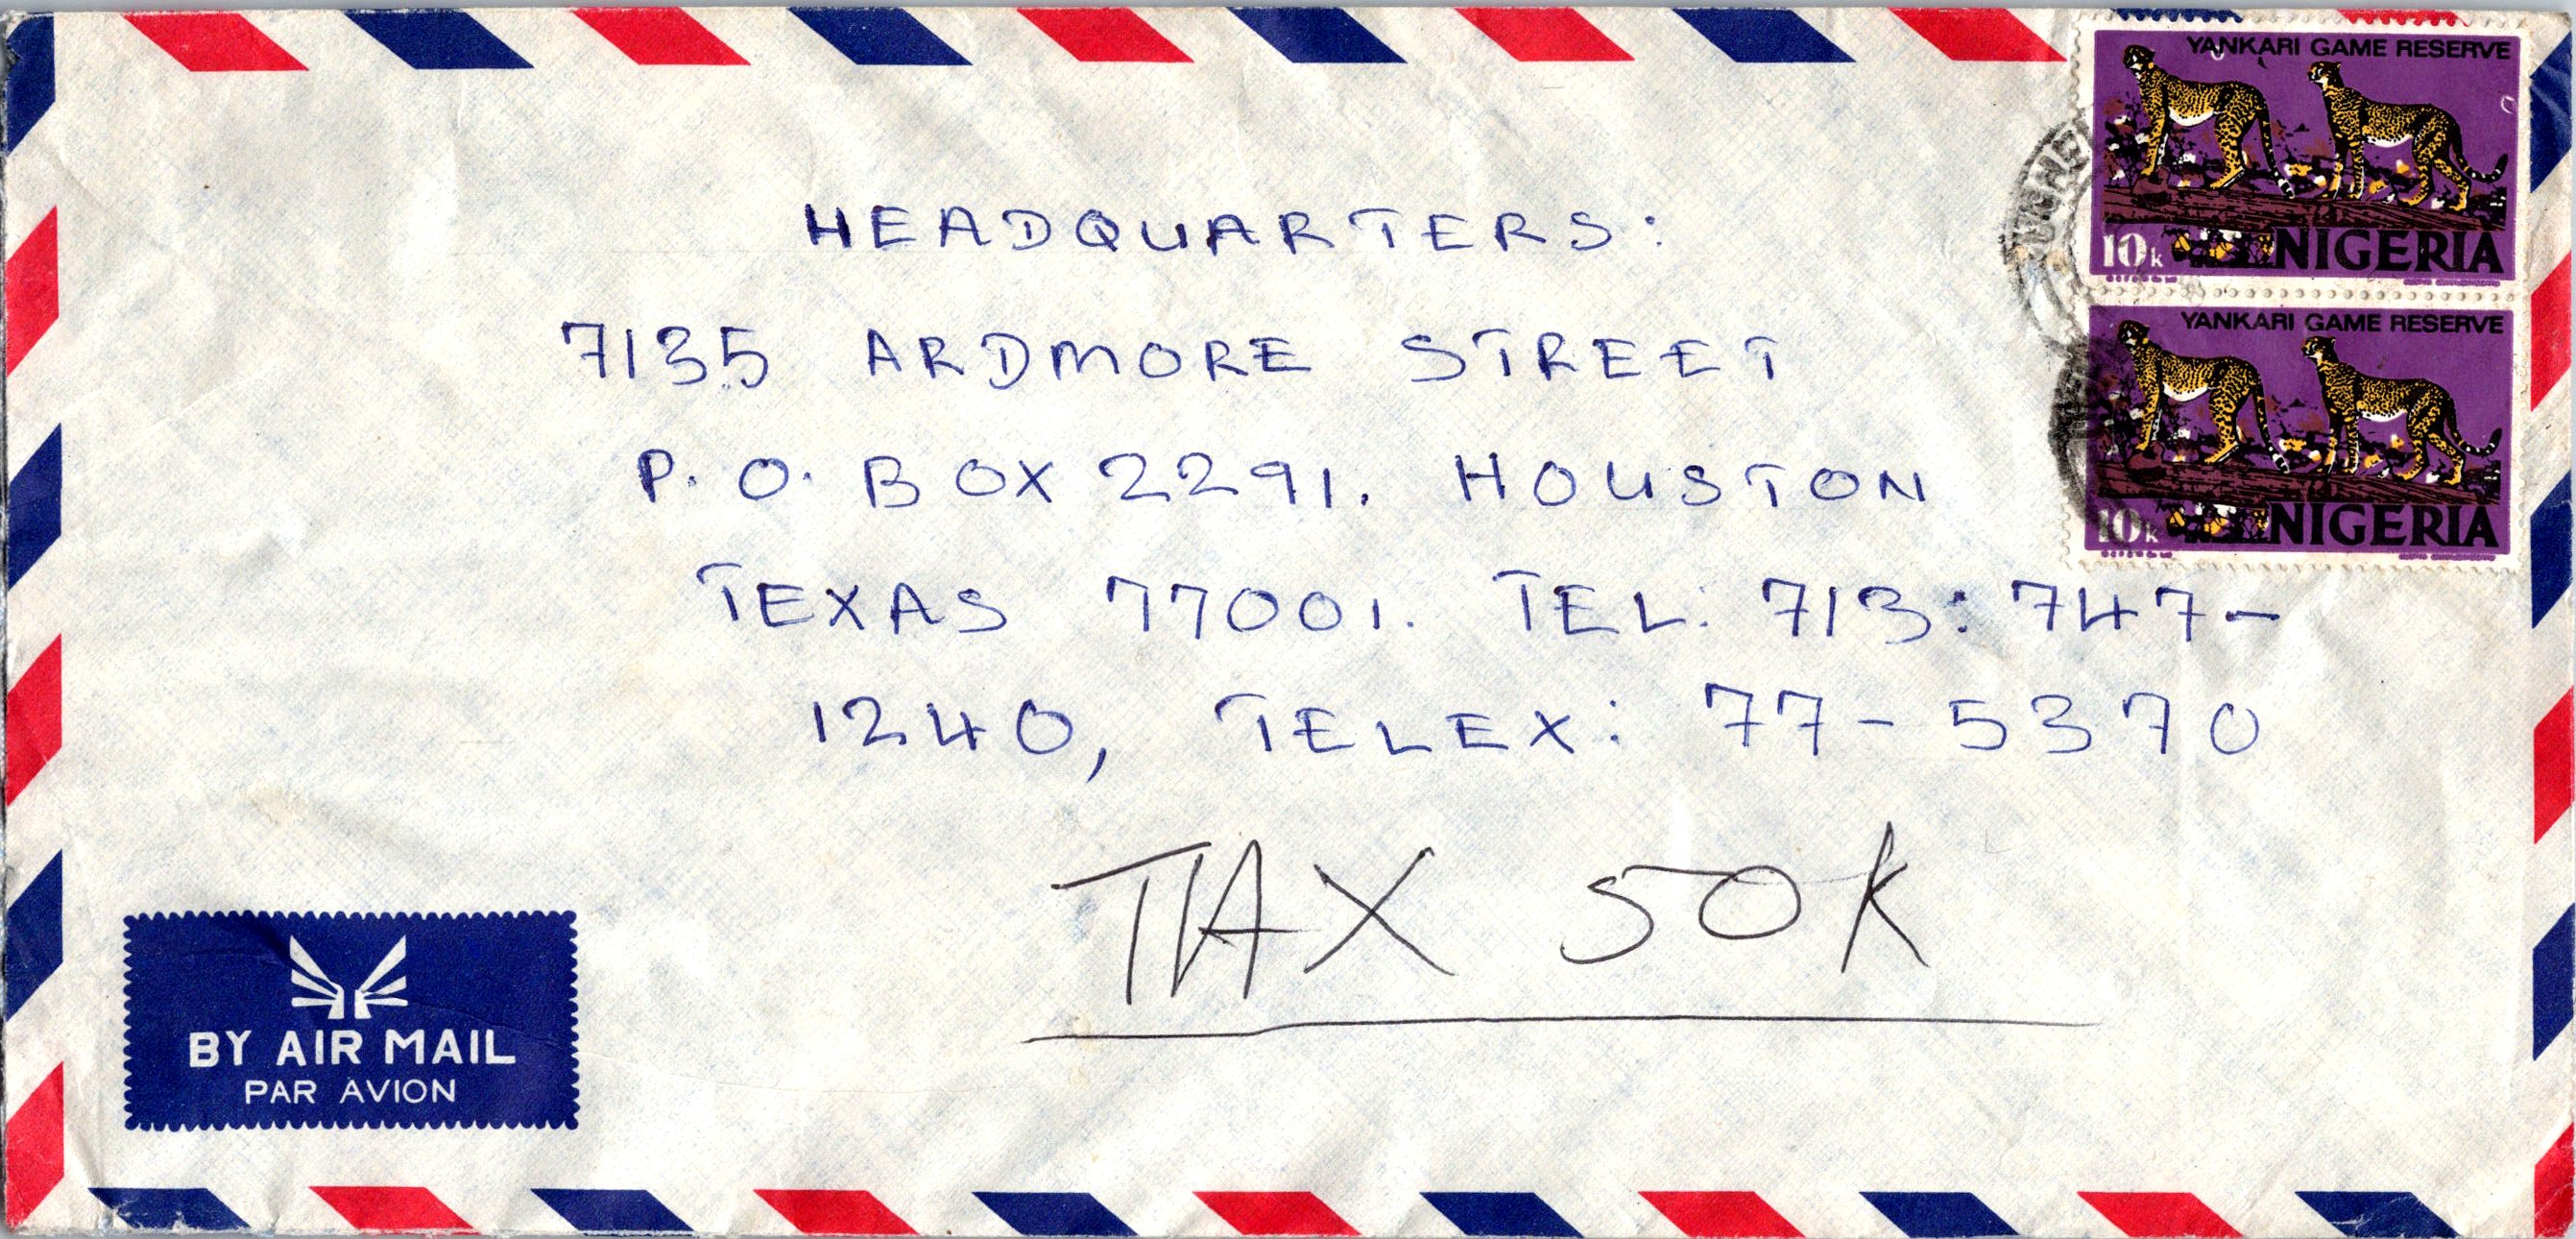 YANKARI GAME RESERVE
10k NIGERIA
YANKARI GAME RESERVE
10k NIGERIA
HEADQUARTERS:
7135 ARDMORE STREET
P. O. BOX 2291. HOUSTON
TEXAS 77001. TEL: 713: 747-
1240, TELEX: 77-5370
TAX 50K
BY AIR MAIL
PAR AVION